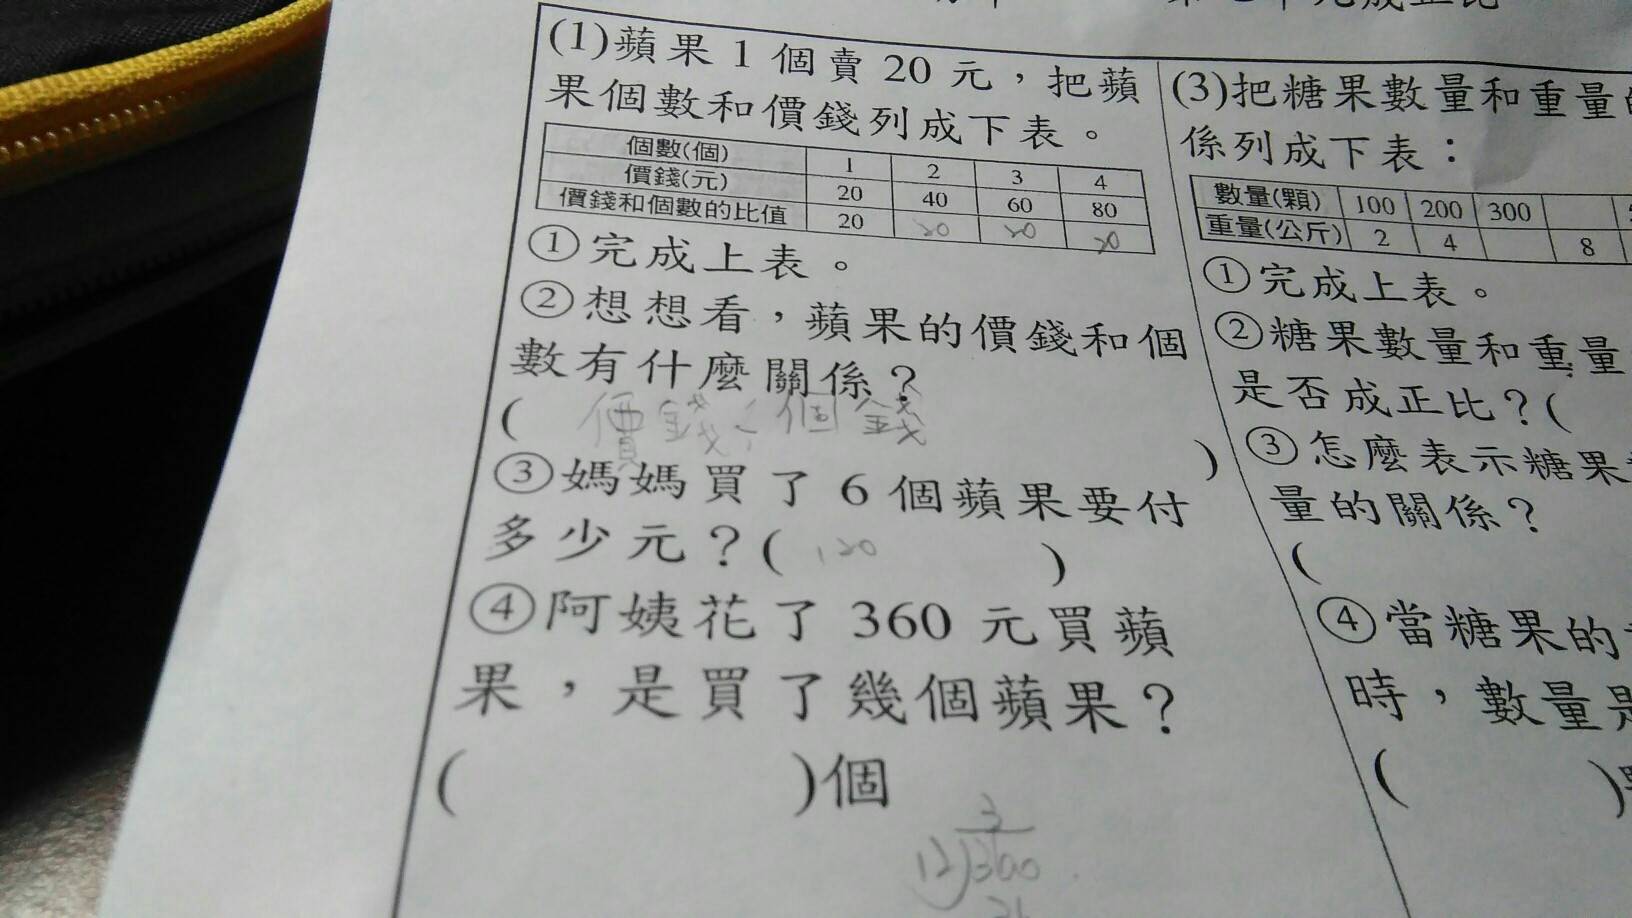 (1)蘋果 1 個賣 20 元，把蘋
果個數和價錢列成下表。
個數(個) 1 2 3 4
價錢(元) 20 40 60 80
價錢和個數的比值 20 20 20 20
①完成上表。
②想想看，蘋果的價錢和個
數有什麼關係？
( 價錢 個 錢 )
③媽媽買了 6 個蘋果要付
多少元？( 120 )
④阿姨花了 360 元買蘋
果，是買了幾個蘋果？
( )個
3
12
(3)把糖果數量和重量
係列成下表：
數量(顆) 100 200 300
重量(公斤) 2 4 8
①完成上表。
②糖果數量和重量
是否成正比？(
③怎麼表示糖果
量的關係？
(
④當糖果的
時，數量是
( )